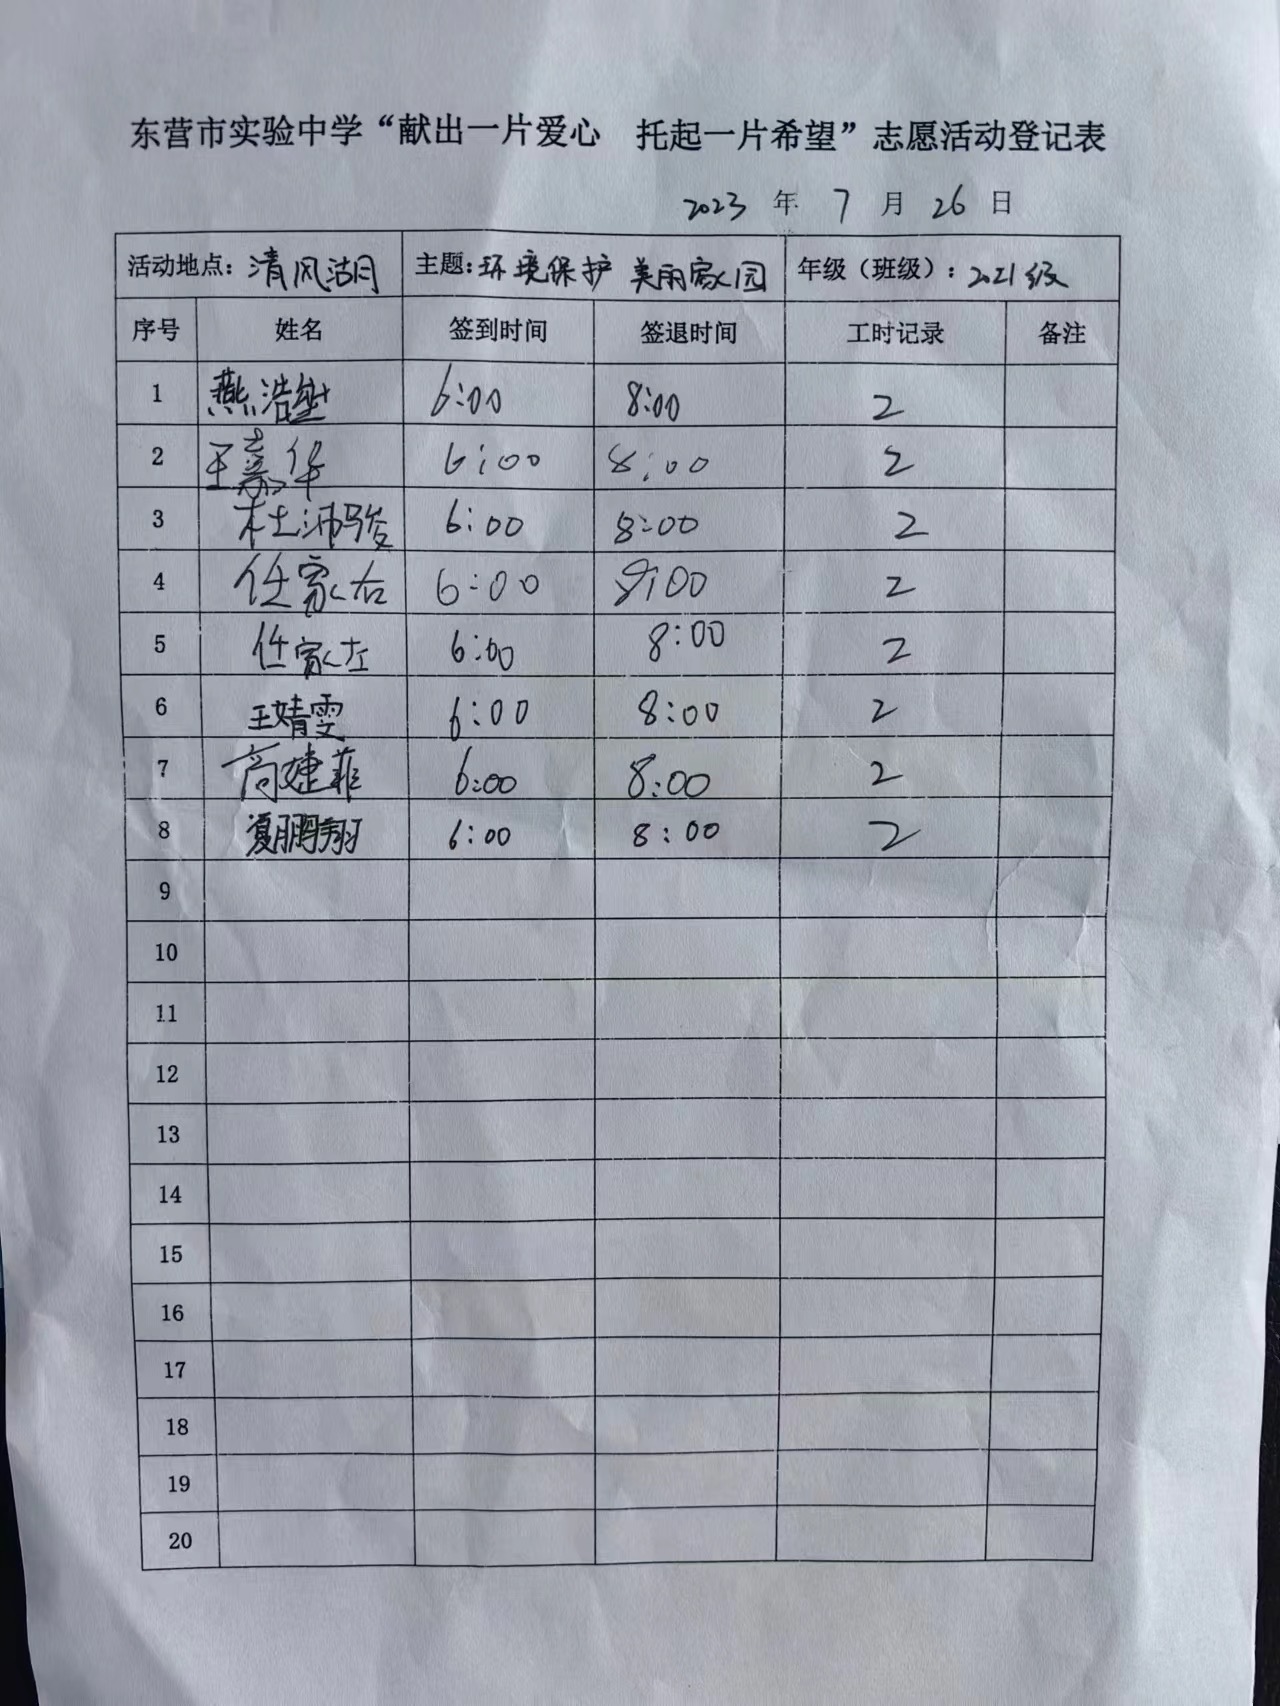 东营市实验中学“献出一片爱心 托起一片希望”志愿活动登记表
2023 年 7 月 26 日
活动地点：清风湖 主题：环境保护 美丽家园 年级（班级）：2021级
序号 姓名 签到时间 签退时间 工时记录 备注
1 燕浩 6:00 8:00 2
2 王嘉华 6:00 8:00 2
3 杜沛骏 6:00 8:00 2
4 任家右 6:00 8:00 2
5 任家左 6:00 8:00 2
6 王婧雯 6:00 8:00 2
7 高婕菲 6:00 8:00 2
8 夏鹏翔 6:00 8:00 2
9
10
11
12
13
14
15
16
17
18
19
20